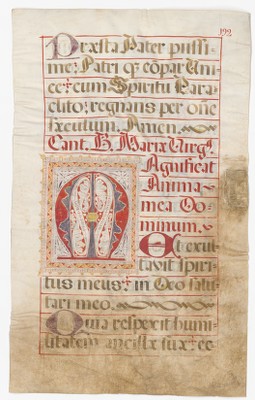 192
Præsta Pater pijssi-
me, Patri q; cōpar Uni-
ce: cum Spiritu Para-
clito, regnans per oñe
sæculum. Amen.
Cant. B. Mariæ Virg.
Magnificat
Anima
mea Do-
minum.
Et exul
tavit spiri-
tus meus: in Deo salu-
tari meo.
Quia respexit humi-
litatem ancillæ suæ: ec